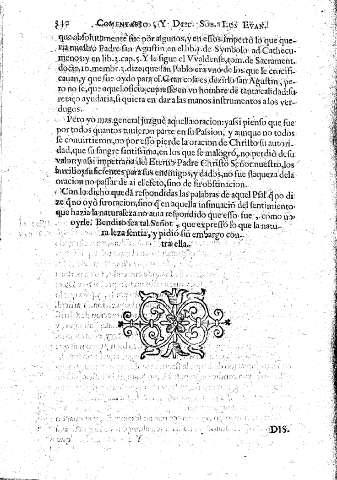 COMENTARIO, Y DISC. SOB. LOS EVAN.
que absolutamente fue por algunos, y en essos impetrò lo que que-
ria nuestro Padre san Agustin, en el lib. de Symbolo ad Cathecu-
menos, y en lib. 3. cap. 5. Y la sigue el Vvaldense, tom. de Sacrament.
docto. 10. membr. 3. dize, que san Pablo era vno de los que le crucifi-
cauan, y que fue oydo para el. Gran cosa es, dezirlo san Agustin, pe-
ro no se, que aquel oficio cupiesse en vn hombre de tanta calidad: su
retaço ayudaria, si quiera en dar a las manos instrumentos a los ver-
dugos.
Pero yo mas general juzguè aquella oracion: y assi pienso que fue
por todos quantos tuuieron parte en su Passion, y aunque no todos
se conuirtieron, no por esso pierde la oracion de Christo su autori-
dad, que su sangre santissima, en los que se malogrò, no perdio de su
valor: y assi impetraria del Eterno Padre Christo Señor nuestro, los
auxilios suficientes para sus enemigos, y dados, no fue flaqueza de la
oracion no passar de ai el efeto, sino de su obstinacion.
Con lo dicho queda respondidas las palabras de aquel Psal. q̃ no di-
ze q̃ no oyò su oracion, sino q̃ en aquella insinuaciõ del sentimiento
que hazia la naturaleza no auia respondido que esso fue, como no
oyrle. Bendito sea tal Señor, que expressò lo que la natu-
raleza sentia, y pidio sin embargo con-
tra ella.
DIS.